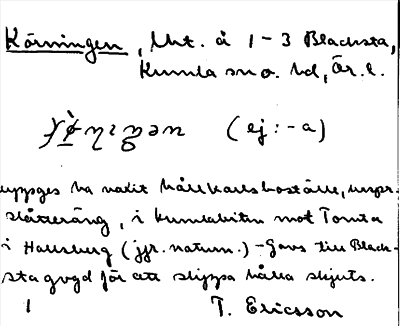 Körningen, Uht. å 1-3 Blacksta,
Kumla sn o. hd, Ör. l.
(ej: -a)
uppges ha varit hållkarlsboställe, urspr.
slåtteräng, i Kumlabiten mot Tomta
i Hallsberg (jfr. naturn.) - Gavs till Black-
sta gvgd för att slippa hålla skjuts.
1 T. Ericsson